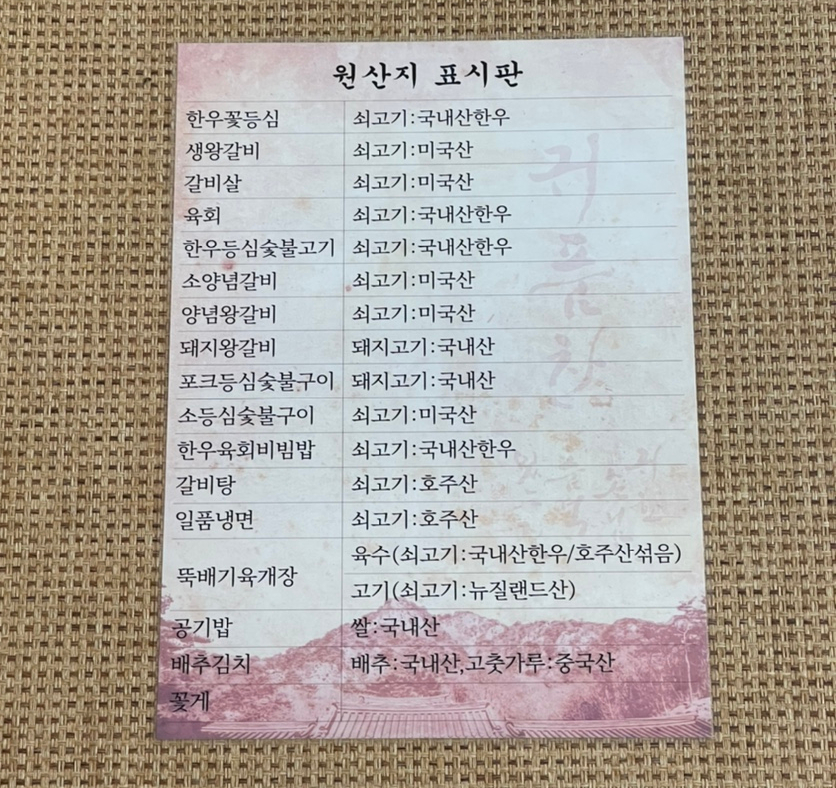 원산지 표시판
한우꽃등심 쇠고기:국내산한우
생왕갈비 쇠고기:미국산
갈비살 쇠고기:미국산
육회 쇠고기:국내산한우
한우등심숯불고기 쇠고기:국내산한우
소양념갈비 쇠고기:미국산
양념왕갈비 쇠고기:미국산
돼지왕갈비 돼지고기:국내산
포크등심숯불구이 돼지고기:국내산
소등심숯불구이 쇠고기:미국산
한우육회비빔밥 쇠고기:국내산한우
갈비탕 쇠고기:호주산
일품냉면 쇠고기:호주산
뚝배기육개장 육수(쇠고기:국내산한우/호주산섞음)
고기(쇠고기:뉴질랜드산)
공기밥 쌀:국내산
배추김치 배추:국내산,고춧가루:중국산
꽃게